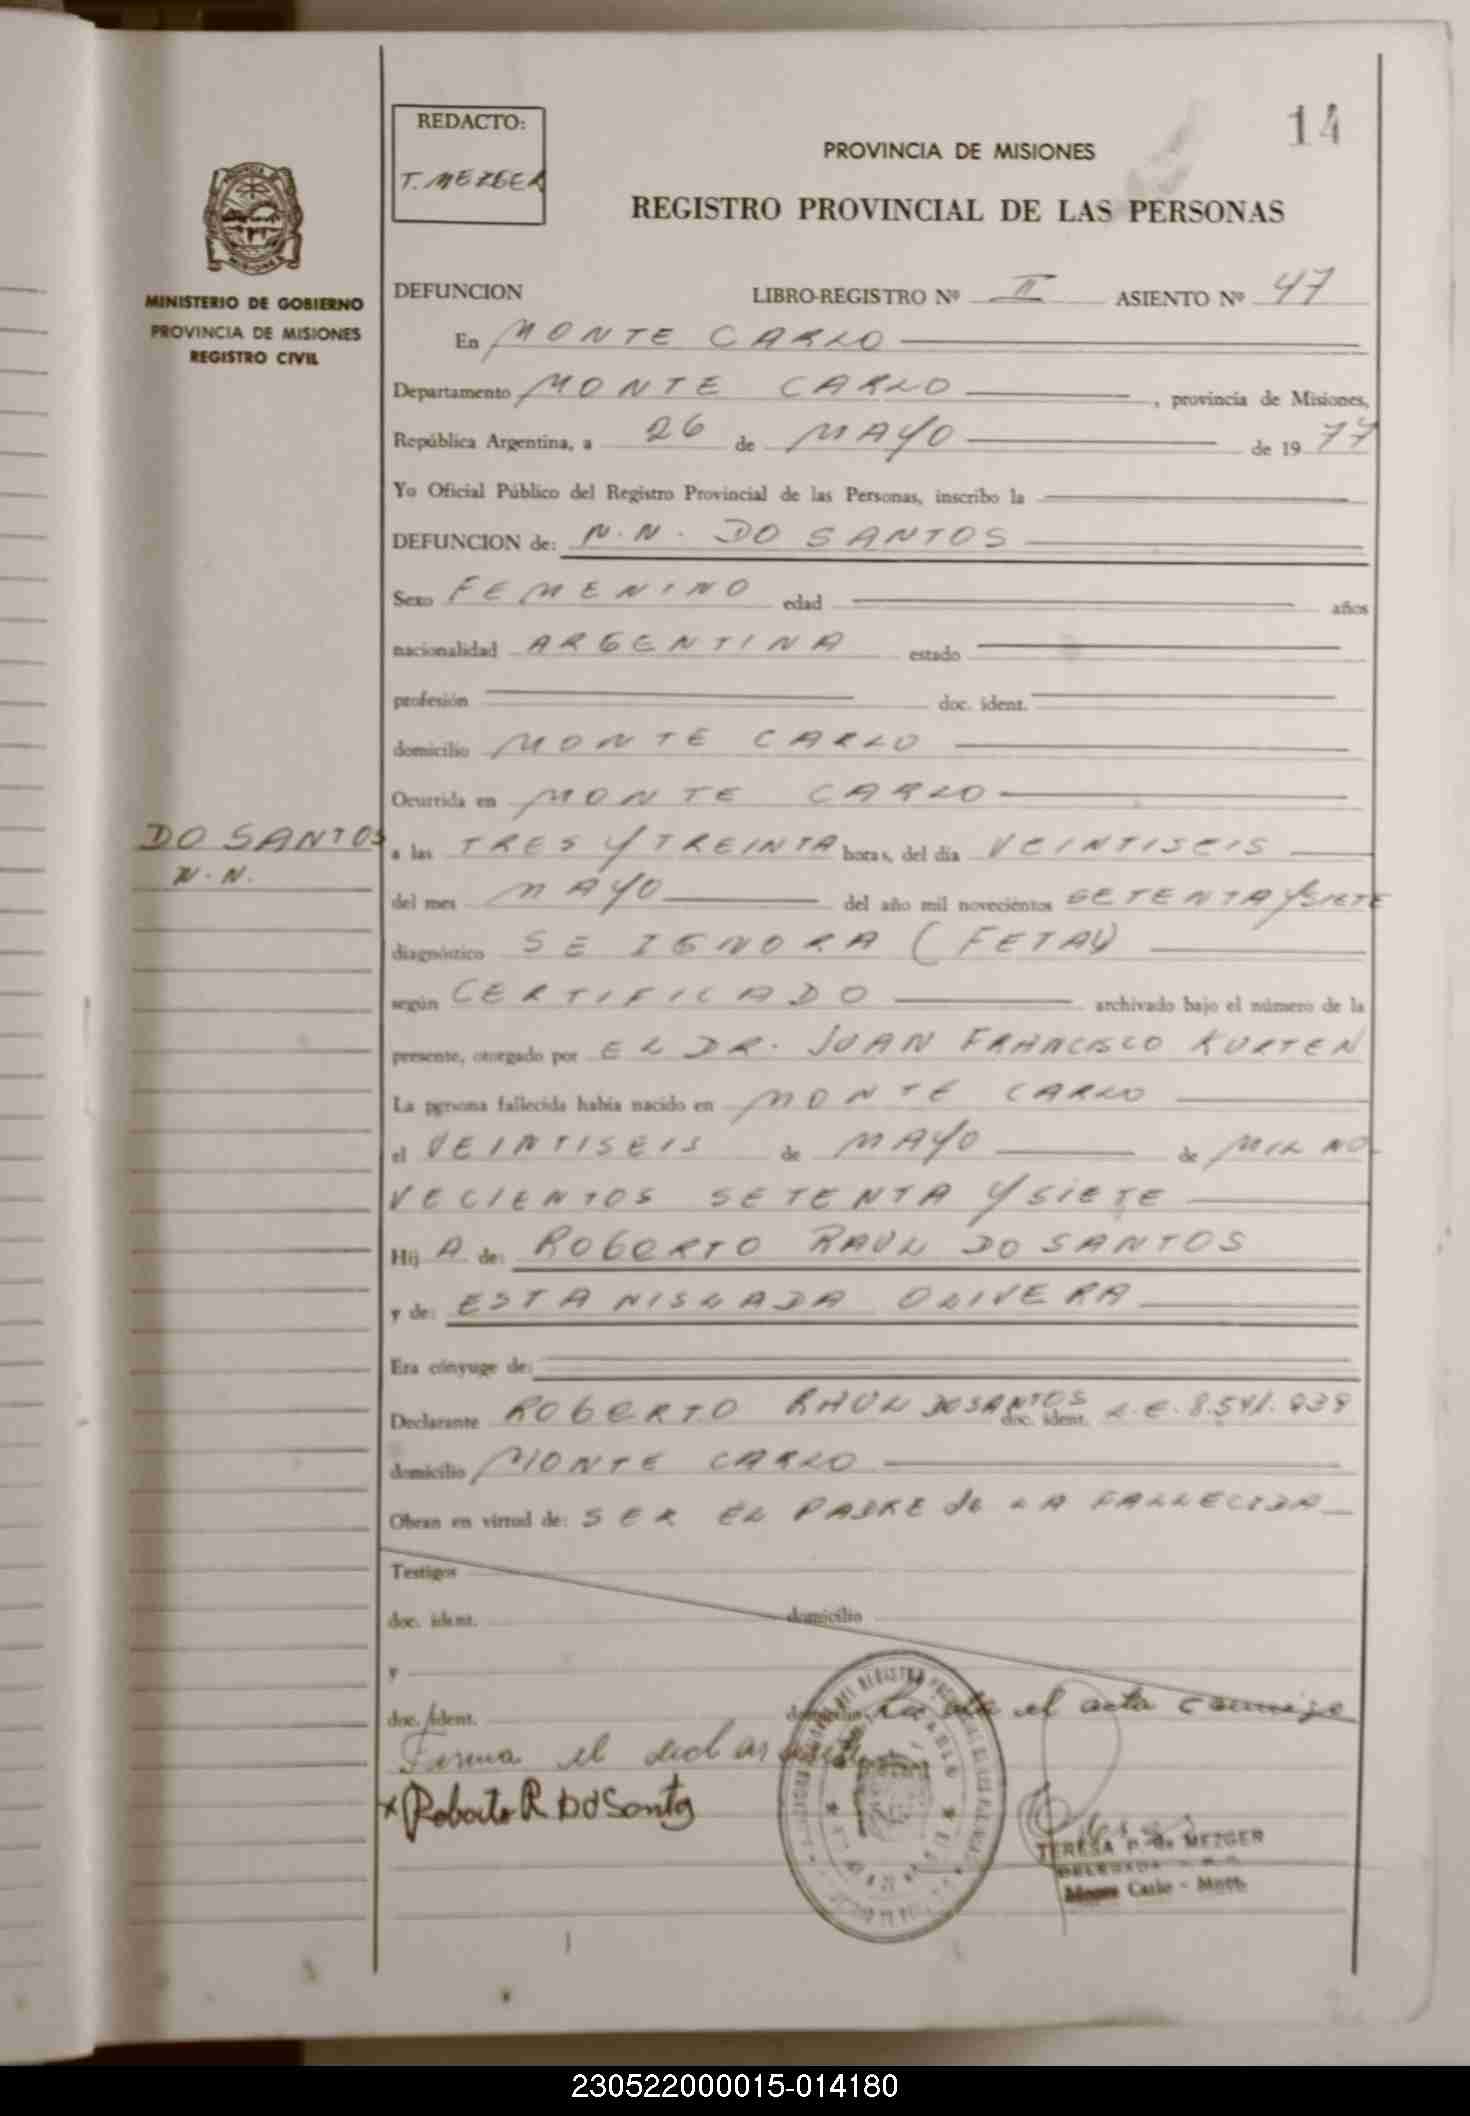 14
REDACTO:
T. MEZGER
PROVINCIA DE MISIONES
REGISTRO PROVINCIAL DE LAS PERSONAS
MINISTERIO DE GOBIERNO
PROVINCIA DE MISIONES
REGISTRO CIVIL
DEFUNCION LIBRO-REGISTRO Nº II ASIENTO Nº 47
En MONTE CARLO
Departamento MONTE CARLO, provincia de Misiones,
República Argentina, a 26 de MAYO de 1977
Yo Oficial Público del Registro Provincial de las Personas, inscribo la
DEFUNCION de: N.N. DO SANTOS
Sexo FEMENINO edad años
nacionalidad ARGENTINA estado
profesión doc. ident.
domicilio MONTE CARLO
Ocurrida en MONTE CARLO
DO SANTOS
N.N.
a las TRES Y TREINTA horas, del día VEINTISEIS
del mes MAYO del año mil novecientos SETENTA Y SIETE
diagnóstico SE IGNORA (FETAL)
según CERTIFICADO archivado bajo el número de la
presente, otorgado por EL DR. JUAN FRANCISCO KURTEN
La persona fallecida había nacido en MONTE CARLO
el VEINTISEIS de MAYO de MIL NO-
VECIENTOS SETENTA Y SIETE
Hij A de: ROBERTO RAUL DO SANTOS
y de: ESTANISLADA OLIVERA
Era cónyuge de:
Declarante ROBERTO RAUL DO SANTOS doc. ident. L.E. 8.541.939
domicilio MONTE CARLO
Obran en virtud de: SER EL PADRE de LA FALLECIDA
Testigos
doc. ident. domicilio
y
doc. ident. domicilio
el acta conmigo
Firma el declarante
x Roberto R Do Santos
TERESA P. de MEZGER
DELEGADA
Monte Carlo - Mnes.
230522000015-014180